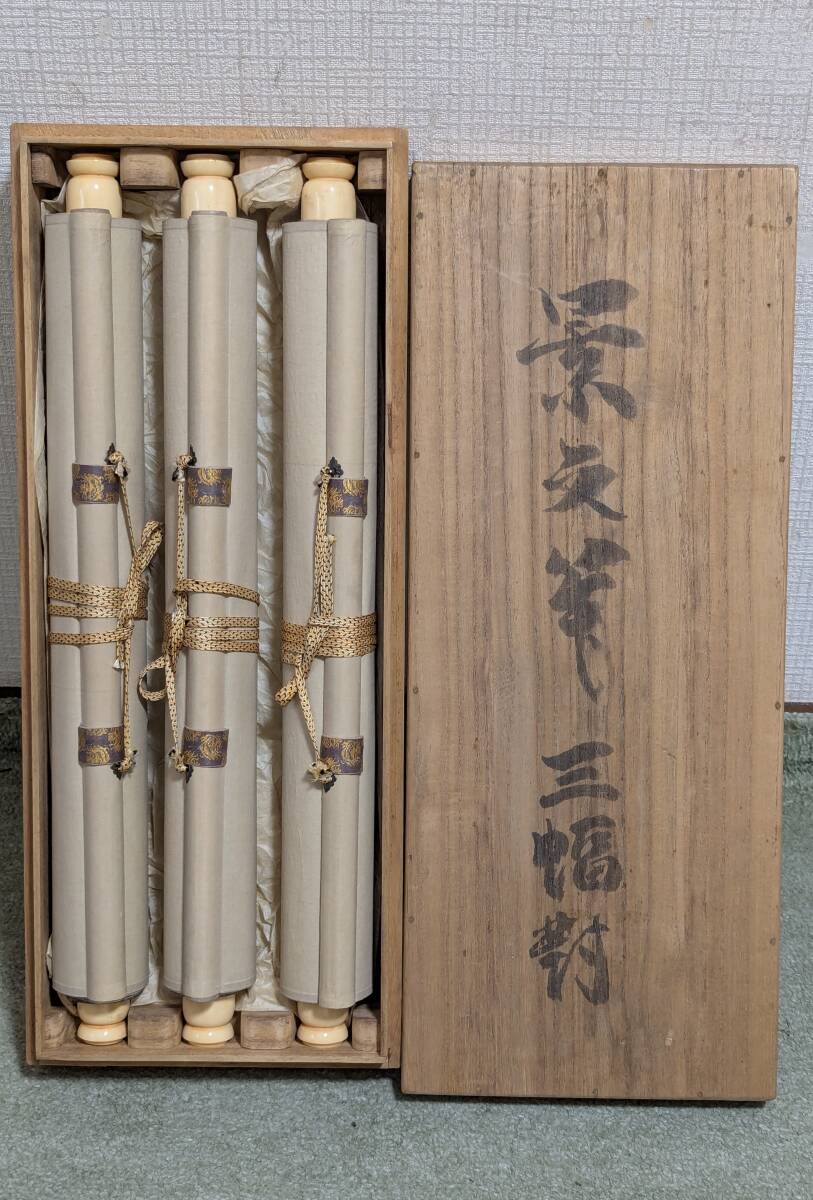 景文筆 三幅對